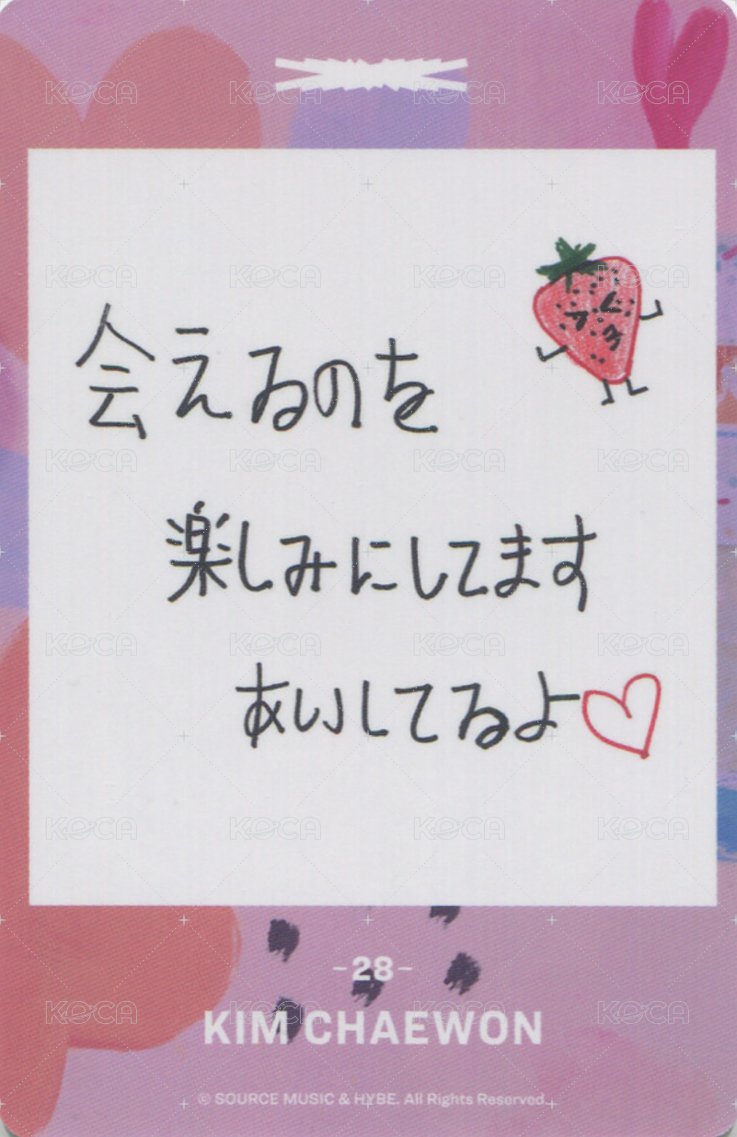 会えるのを
楽しみにしてます
あいしてるよ♡
-28-
KIM CHAEWON
© SOURCE MUSIC & HYBE. All Rights Reserved.
KOCA